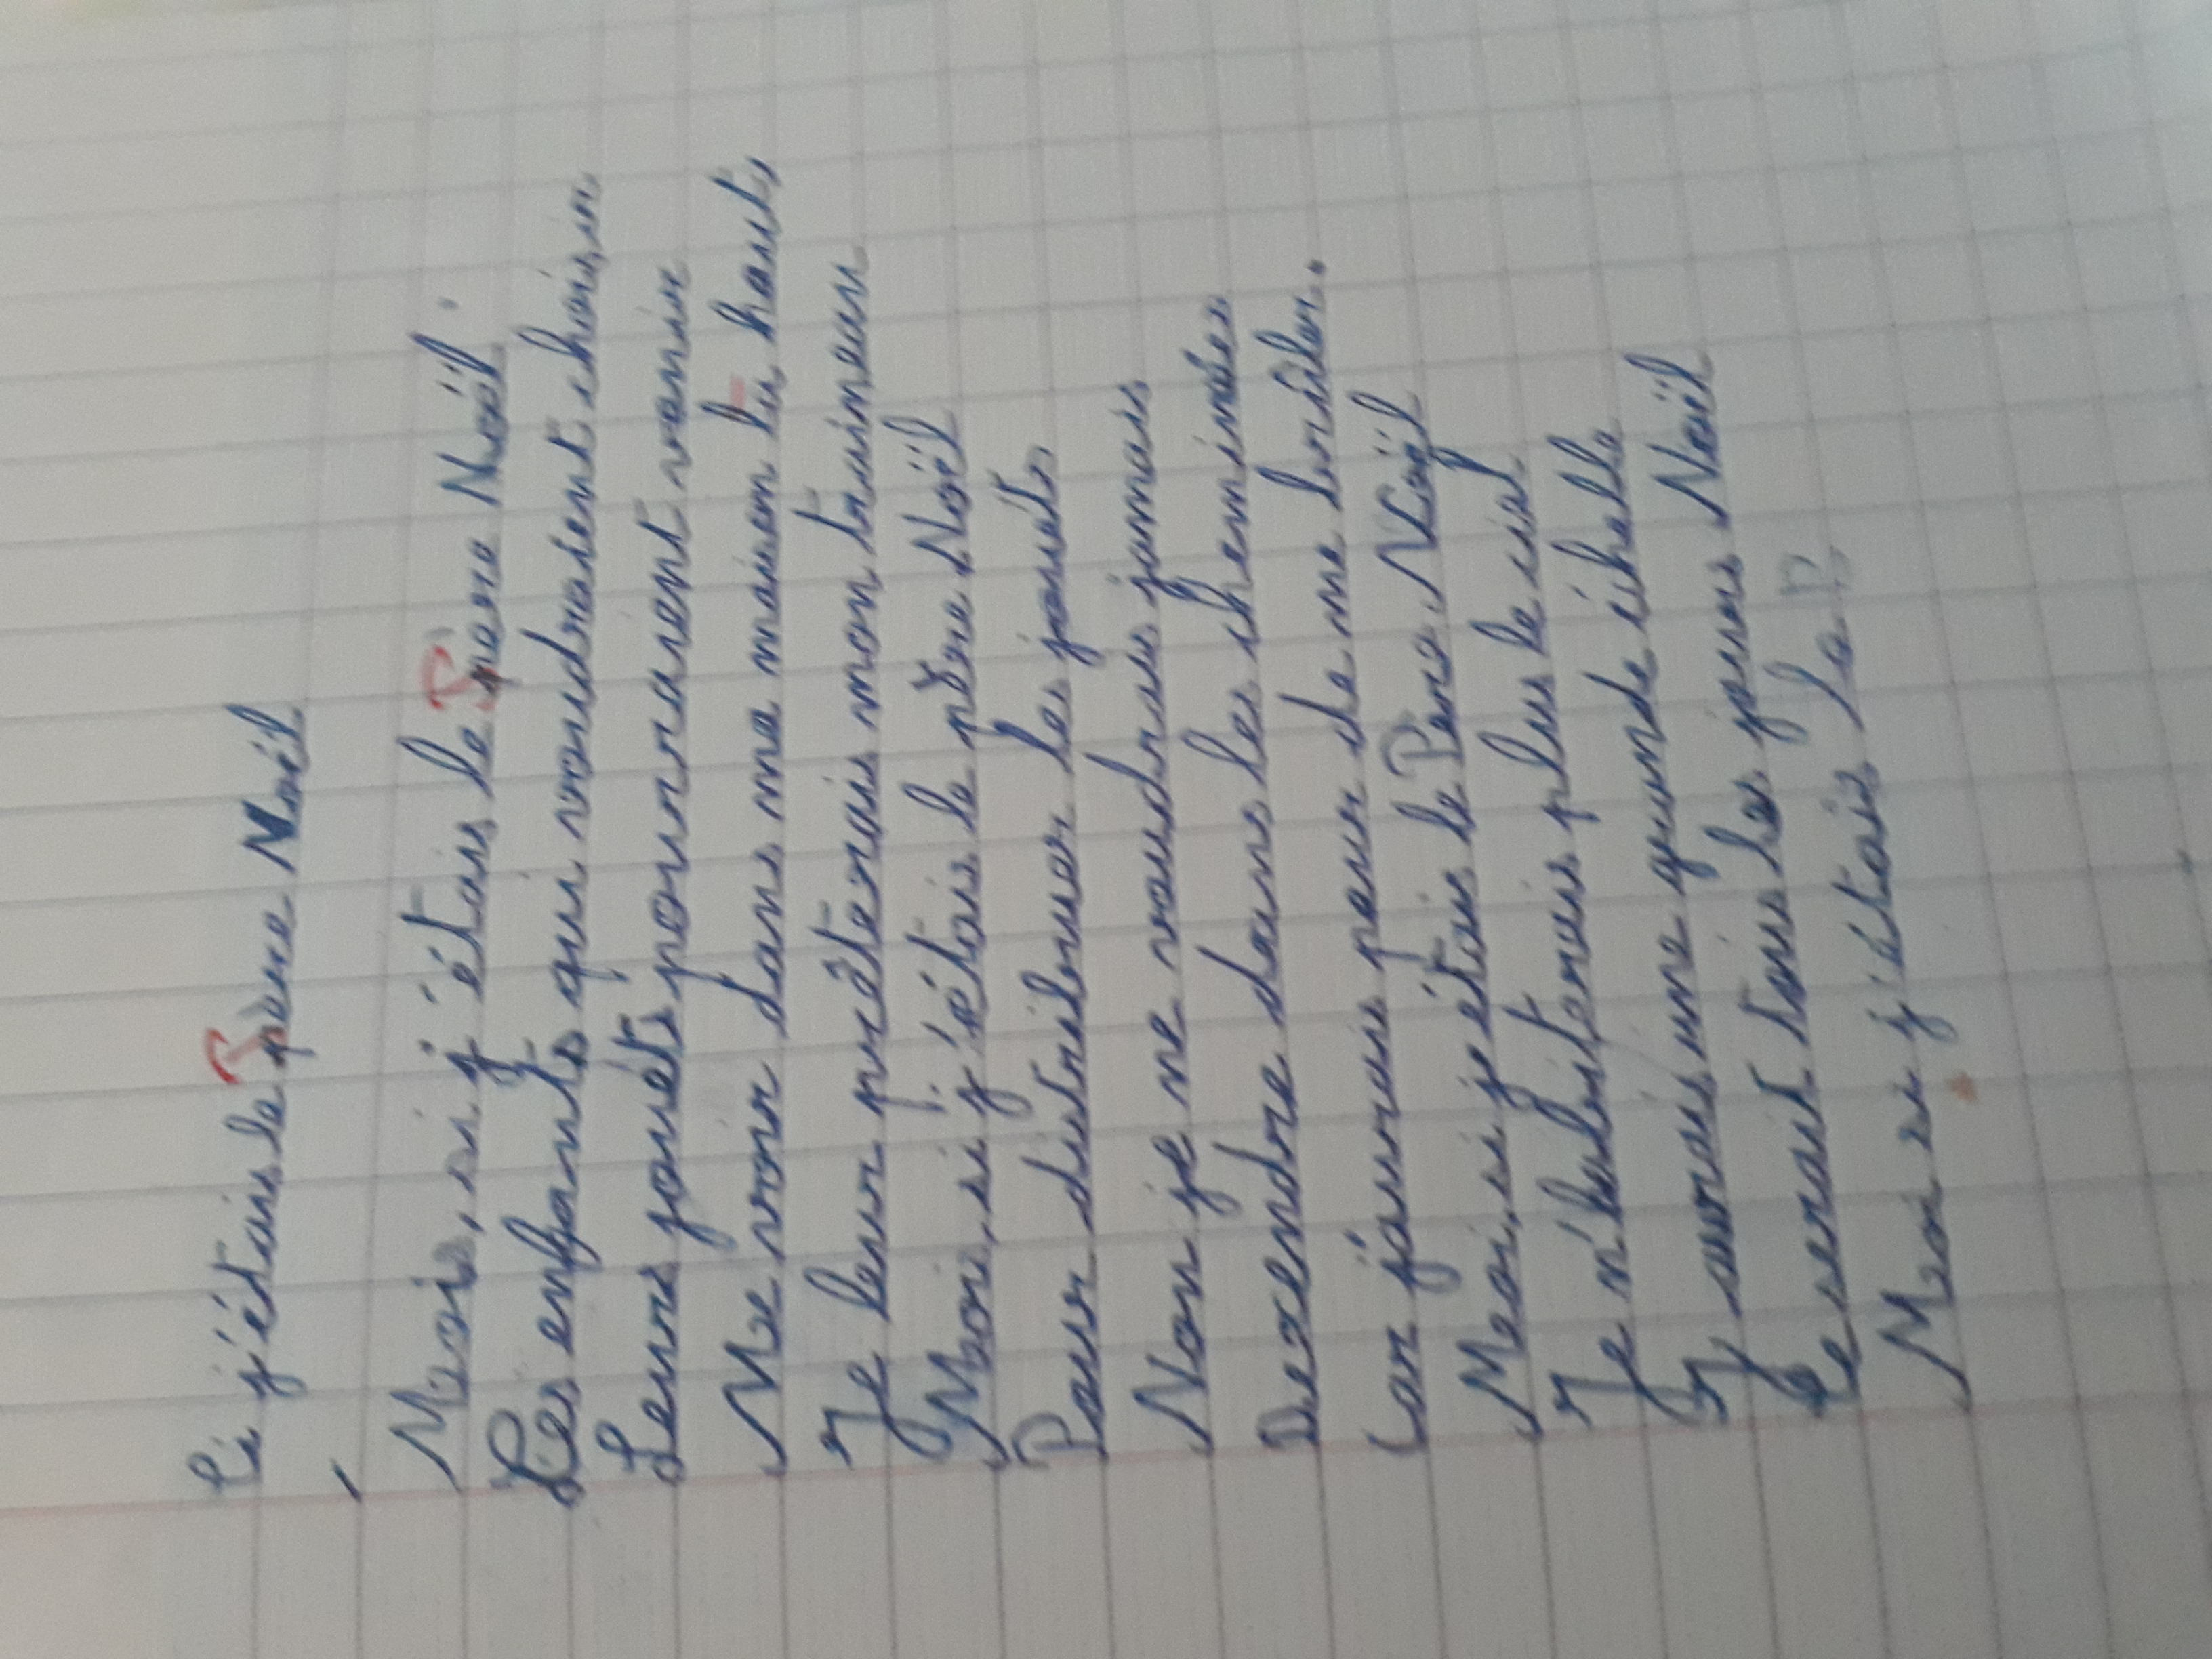 Si j'étais le Père Noël
Moi, si j'étais le Père Noël.
Les enfants qui voudraient choisir
Leurs jouets pourraient venir
Me voir dans ma maison là haut,
Je leur prêterais mon traineau
Moi, si j'étais le père Noël
Pour distribuer les jouets
Non je ne voudrais jamais
Dexendre dans les cheminées
Car j'aurais peur de me brûler.
Moi, si j'étais le Père Noël
Je n'habiterais plus le ciel
J'aurais une grande échelle
Ce serait tous les jours Noël
Moi si j'étais le P